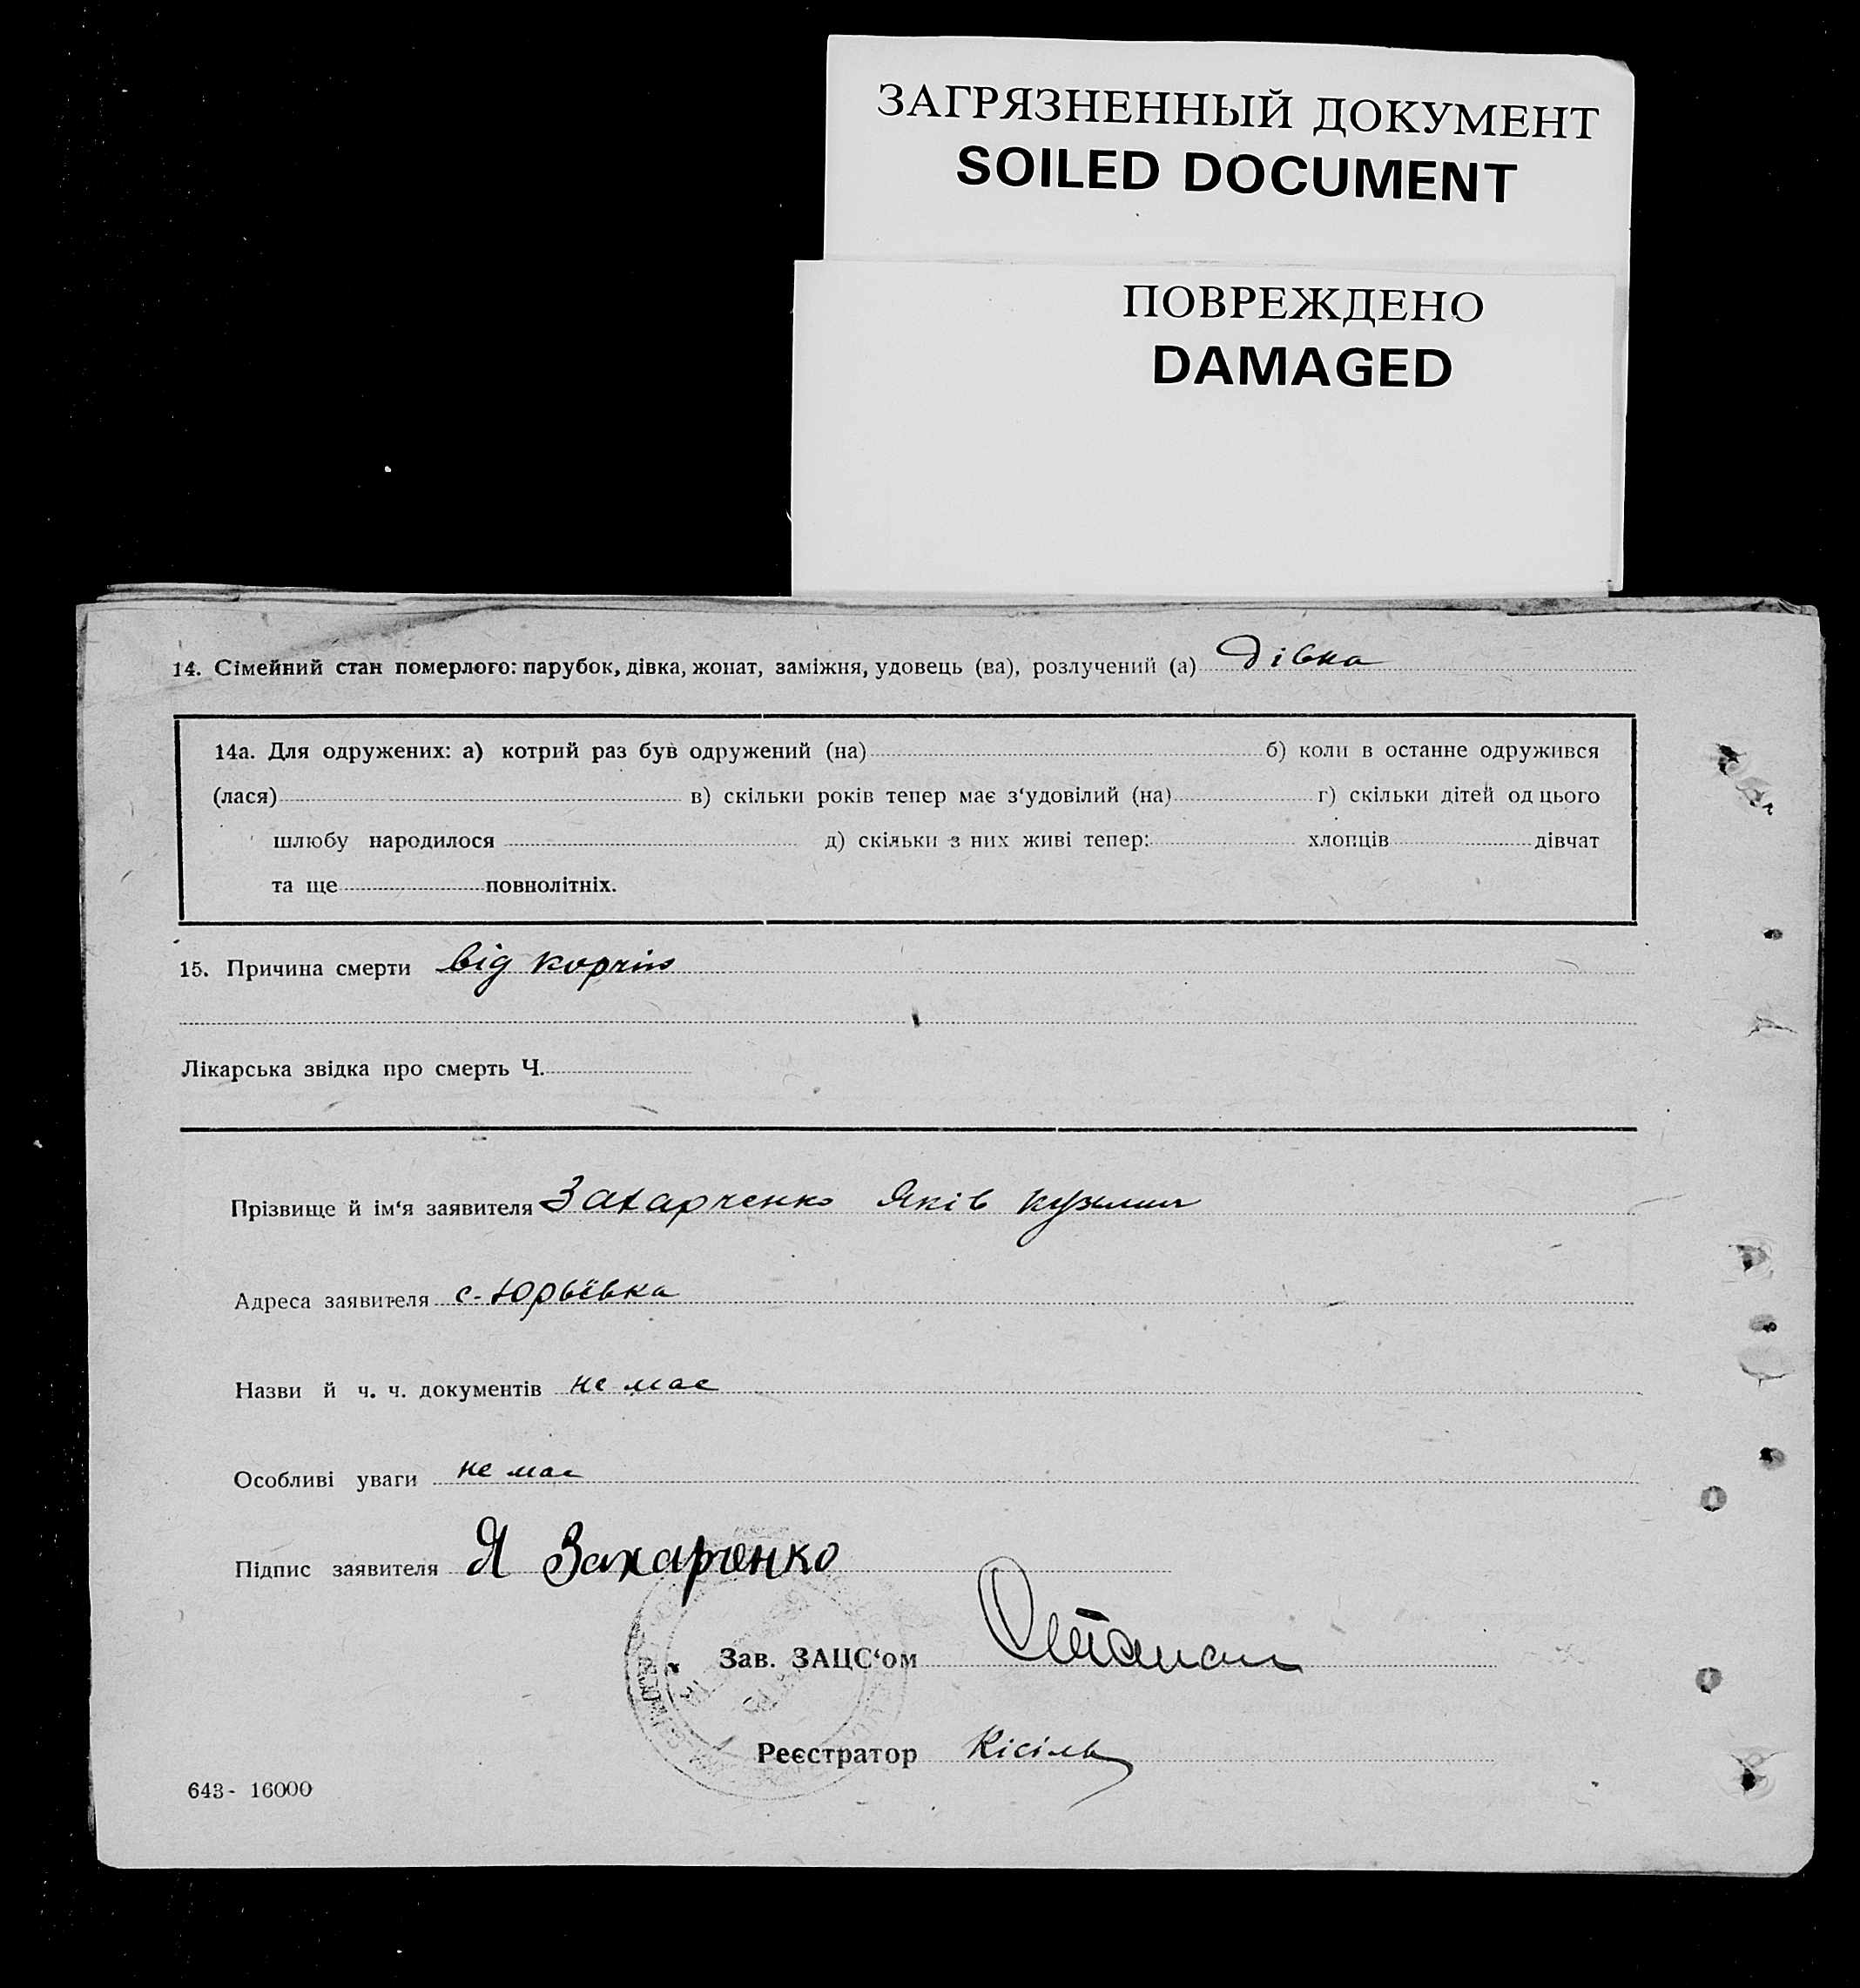 ЗАГРЯЗНЕННЫЙ ДОКУМЕНТ
SOILED DOCUMENT
ПОВРЕЖДЕНО
DAMAGED
14. Сімейний стан померлого: парубок, дівка, жонат, заміжня, удовець (ва), розлучений (а) дівка
14а. Для одружених: а) котрий раз був одружений (на) б) коли в останне одружився
(лася) в) скільки років тепер має з‘удовілий (на) г) скільки дітей од цього
шлюбу народилося д) скільки з них живі тепер: хлопців дівчат
та ще повнолітніх.
15. Причина смерти від
Лікарська звідка про смерть Ч.
Прізвище й ім‘я заявителя Захарченко Яків
Адреса заявителя с. Юрьївка
Назви й ч. ч. документів не має
Особливі уваги не має
Підпис заявителя Я Захарченко
Зав. ЗАЦС‘ом
Реєстратор Кісіль
643- 16000